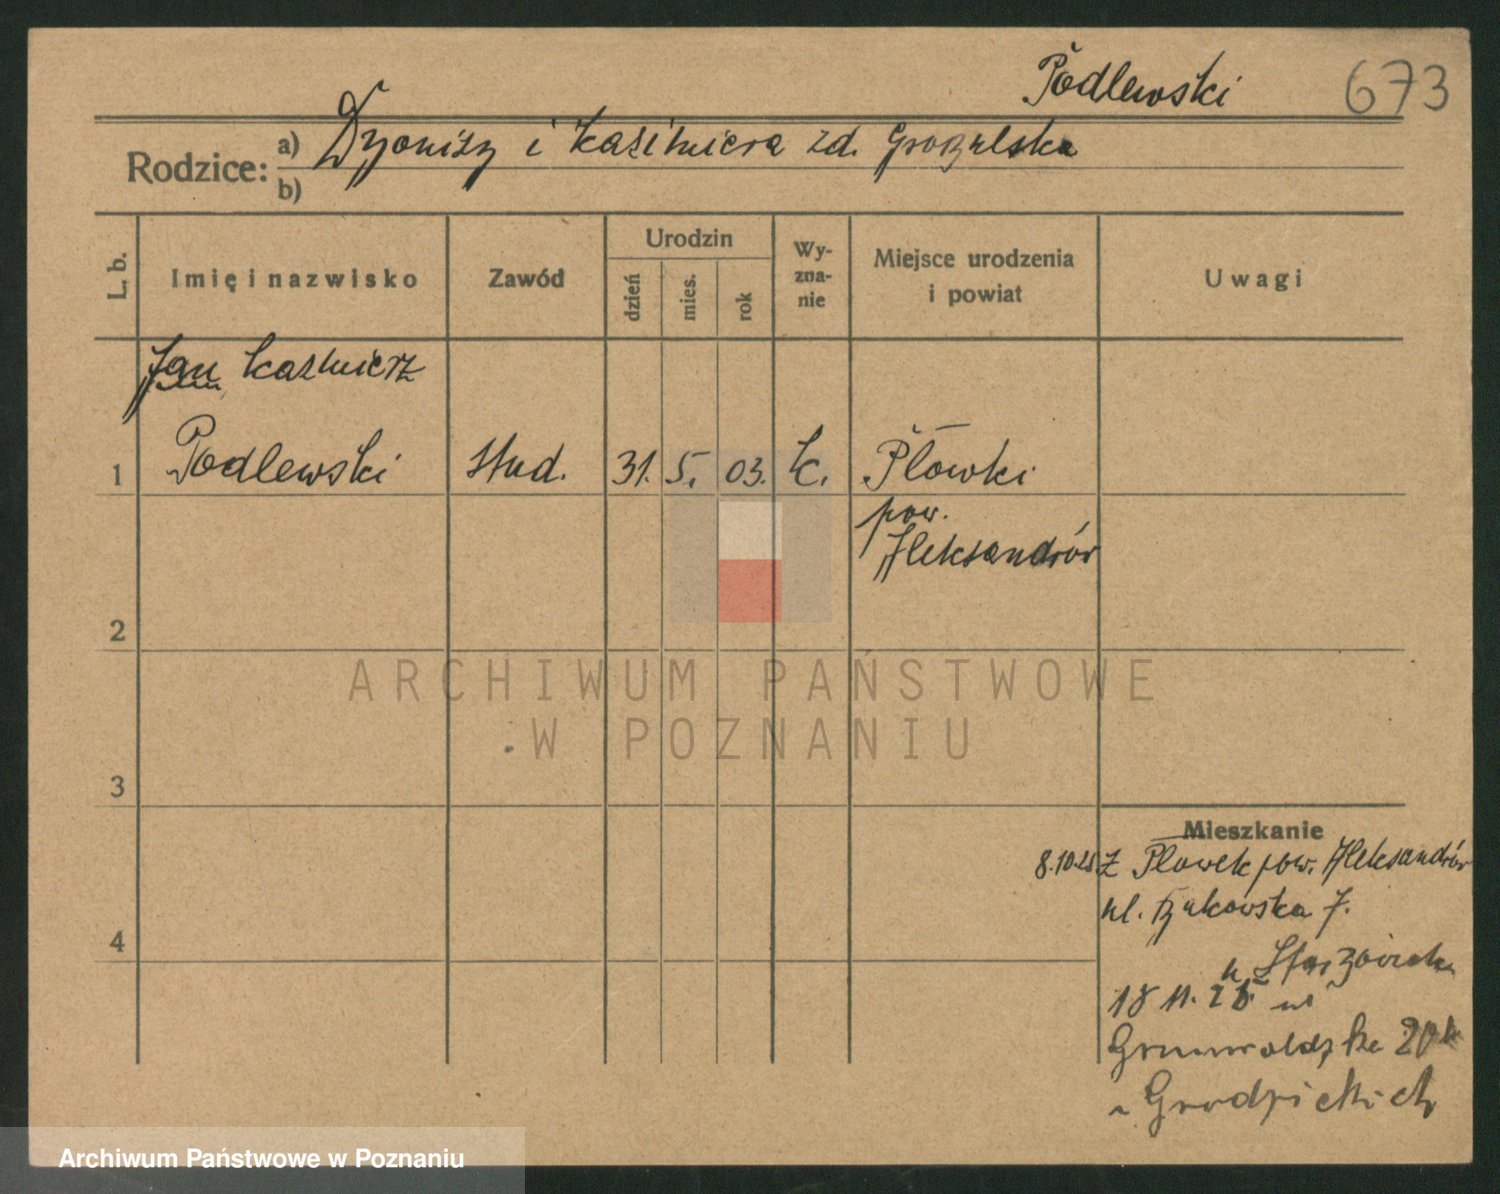 Podlewski 673
Rodzice: a) Dyonizy i Kazimiera zd.
b)
L. b. Imię i nazwisko Zawód Urodzin dzień mies. rok Wy-zna-nie Miejsce urodzenia i powiat Uwagi
Jan Kazimierz
1 Podlewski stud. 31. 5. 03. k. Płowki
pow.
Aleksandrów
2
ARCHIWUM PAŃSTWOWE
W POZNANIU
3
Mieszkanie
8.10.25. Z Płowek pow. Aleksandrów
ul. Bukowska 7.
4
u
18 11. 25 ul
Grunwaldzka 20
Grodzickich
Archiwum Państwowe w Poznaniu